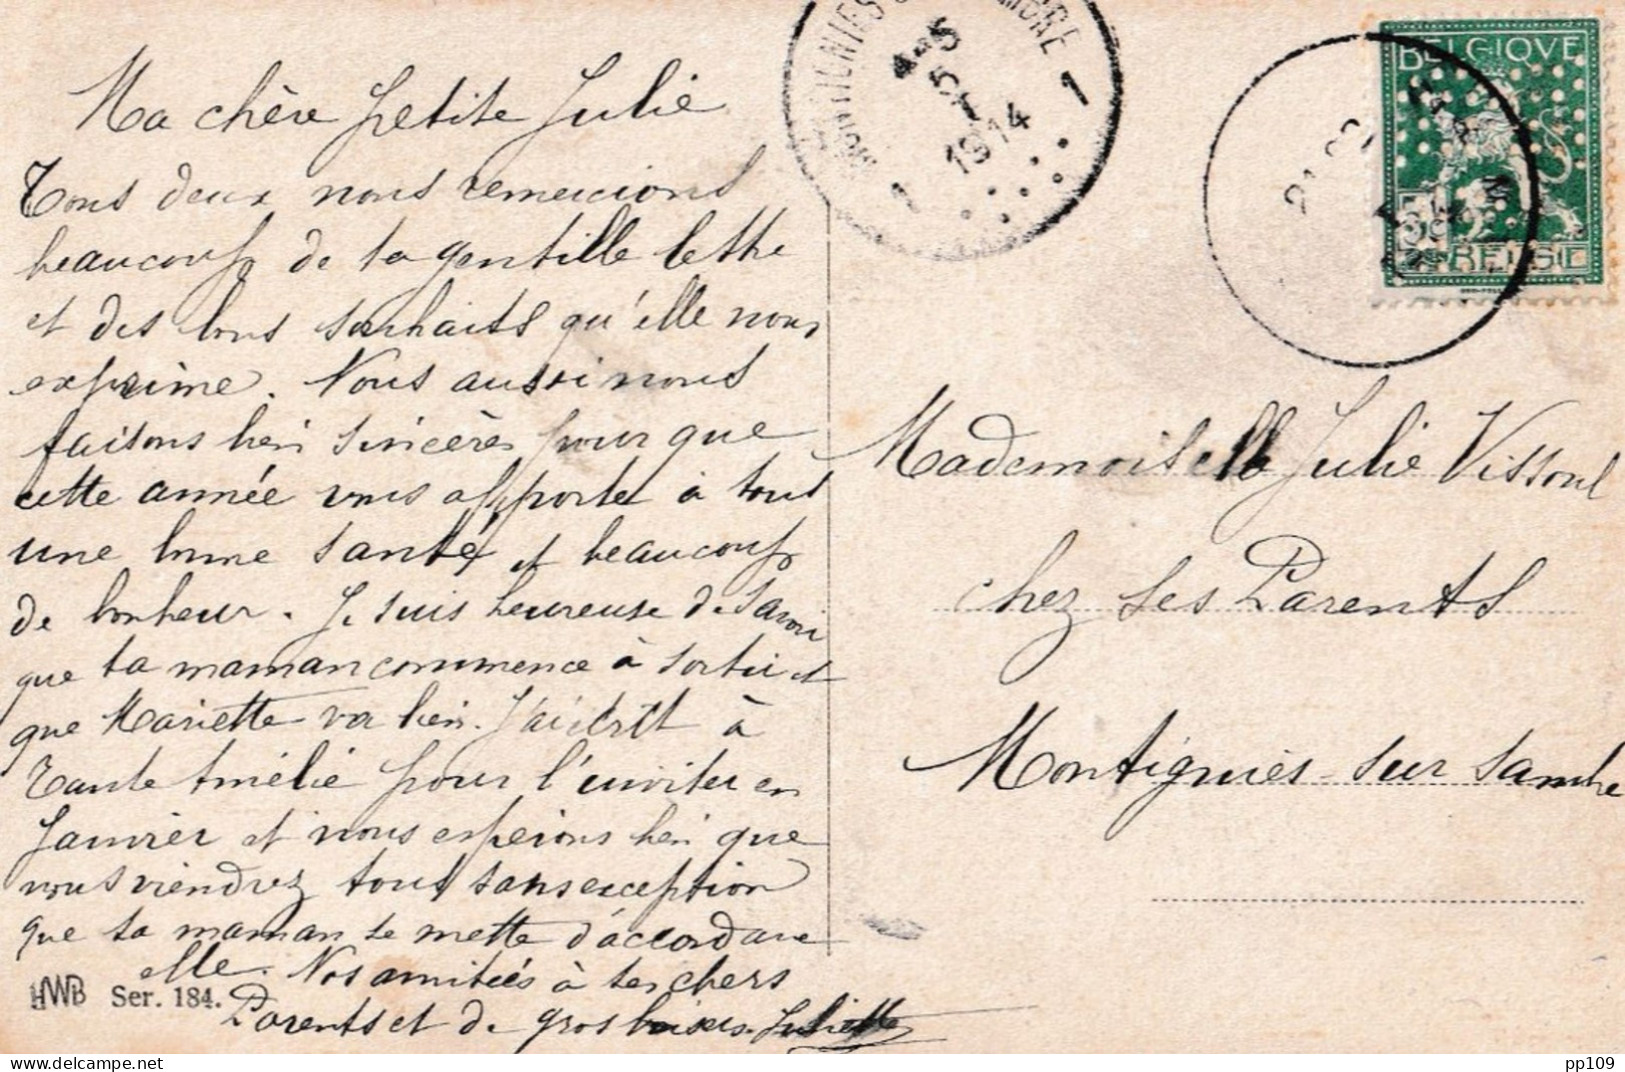 Ma chère petite Julie
Tous deux nous remercions
beaucoup de ta gentille lettre
et des bons souhaits qu'elle nous
exprime. Nous aussi nous
faisons bien sincères pour que
cette année vous apporte à tous
une bonne santé et beaucoup
de bonheur. Je suis heureuse de savoir
que ta maman commence à sortir et
que Mariette va bien. J'ai écrit à
Tante Amélie pour l'inviter en
Janvier et nous espérons bien que
vous viendrez tous sans exception
que ta maman se mette d'accord avec
elle. Nos amitiés à tes chers
Parents et de gros baisers. Juliette
HWB Ser. 184.
MONTIGNIES
5
1914
1 1
BELGIQUE
BELGIË
Mademoiselle Julie Vissoul
chez ses Parents
Montignies-sur Sambre
pp109